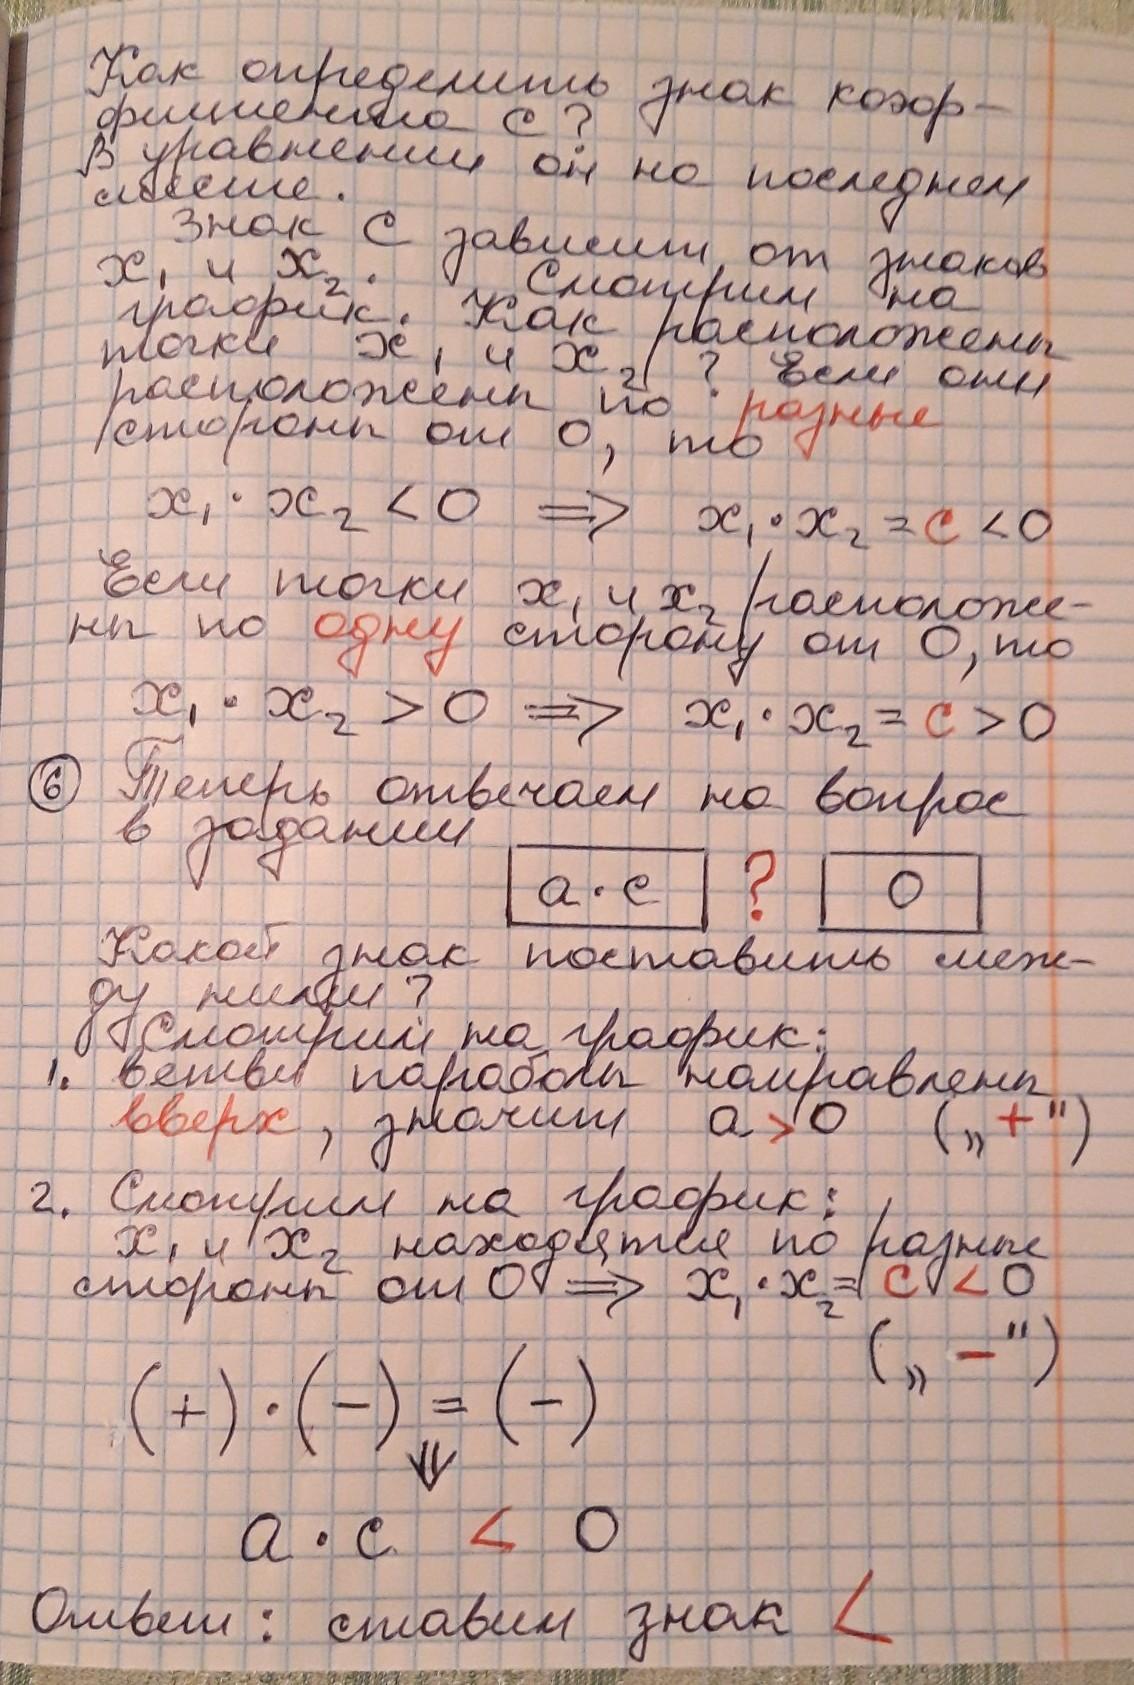 Как определить знак коэф-
фициента с?
В уравнении он на последнем
месте.
Знак с зависит от знаков
x₁ и x₂. Смотрим на
график. Как расположены
точки x₁ и x₂? Если они
расположены по разные
стороны от 0, то
x₁ · x₂ < 0 ⇒ x₁ · x₂ = c < 0
Если точки x₁ и x₂ расположе-
ны по одну сторону от 0, то
x₁ · x₂ > 0 ⇒ x₁ · x₂ = c > 0
⑥ Теперь отвечаем на вопрос
в задании
a · c ? 0
Какой знак поставить меж-
ду ними?
Смотрим на график:
1. ветви параболы направлены
вверх, значит a > 0 („+")
2. Смотрим на график:
x₁ и x₂ находятся по разные
стороны от 0 ⇒ x₁ · x₂ = c < 0
(„−")
(+) · (−) = (−)
⇓
a · c < 0
Ответ: ставим знак <